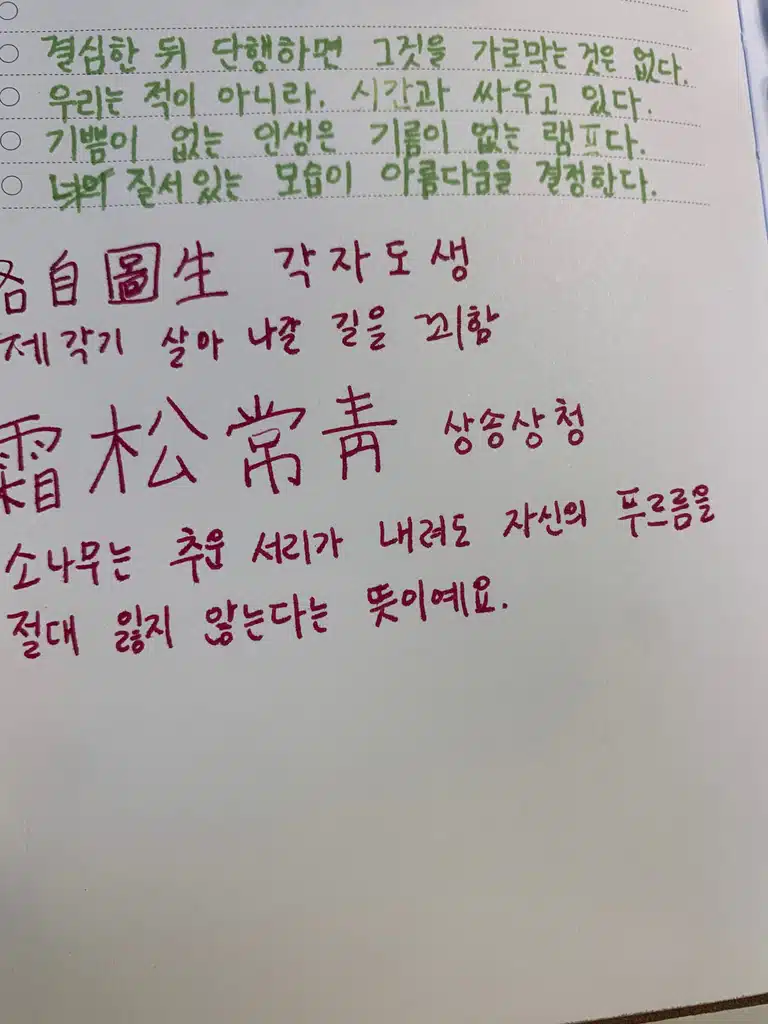 결심한 뒤 단행하면 그것을 가로막는 것은 없다.
우리는 적이 아니라. 시간과 싸우고 있다.
기쁨이 없는 인생은 기름이 없는 램프다.
질서있는 모습이 아름다움을 결정한다.
各自圖生 각자도생
제각기 살아 나갈 길을 꾀함
霜松常青 상송상청
소나무는 추운 서리가 내려도 자신의 푸르름을
절대 잃지 않는다는 뜻이예요.